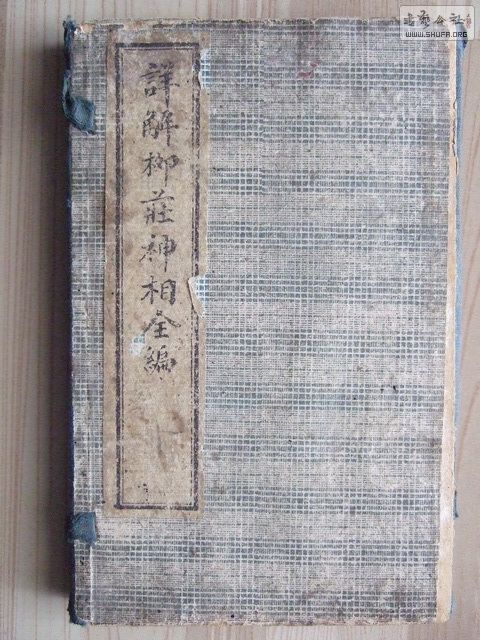 詳解柳莊神相全編
书艺公社
WWW.SHUFA.ORG